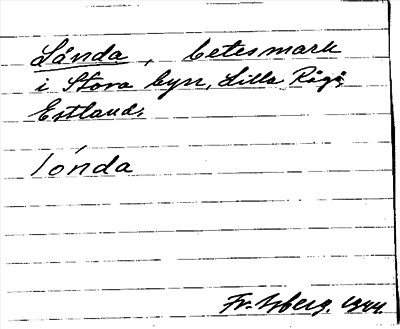 Lånda, betesmark
i Stora byn, Lilla Rågö,
Estland.
lónda
Fr. 1944.